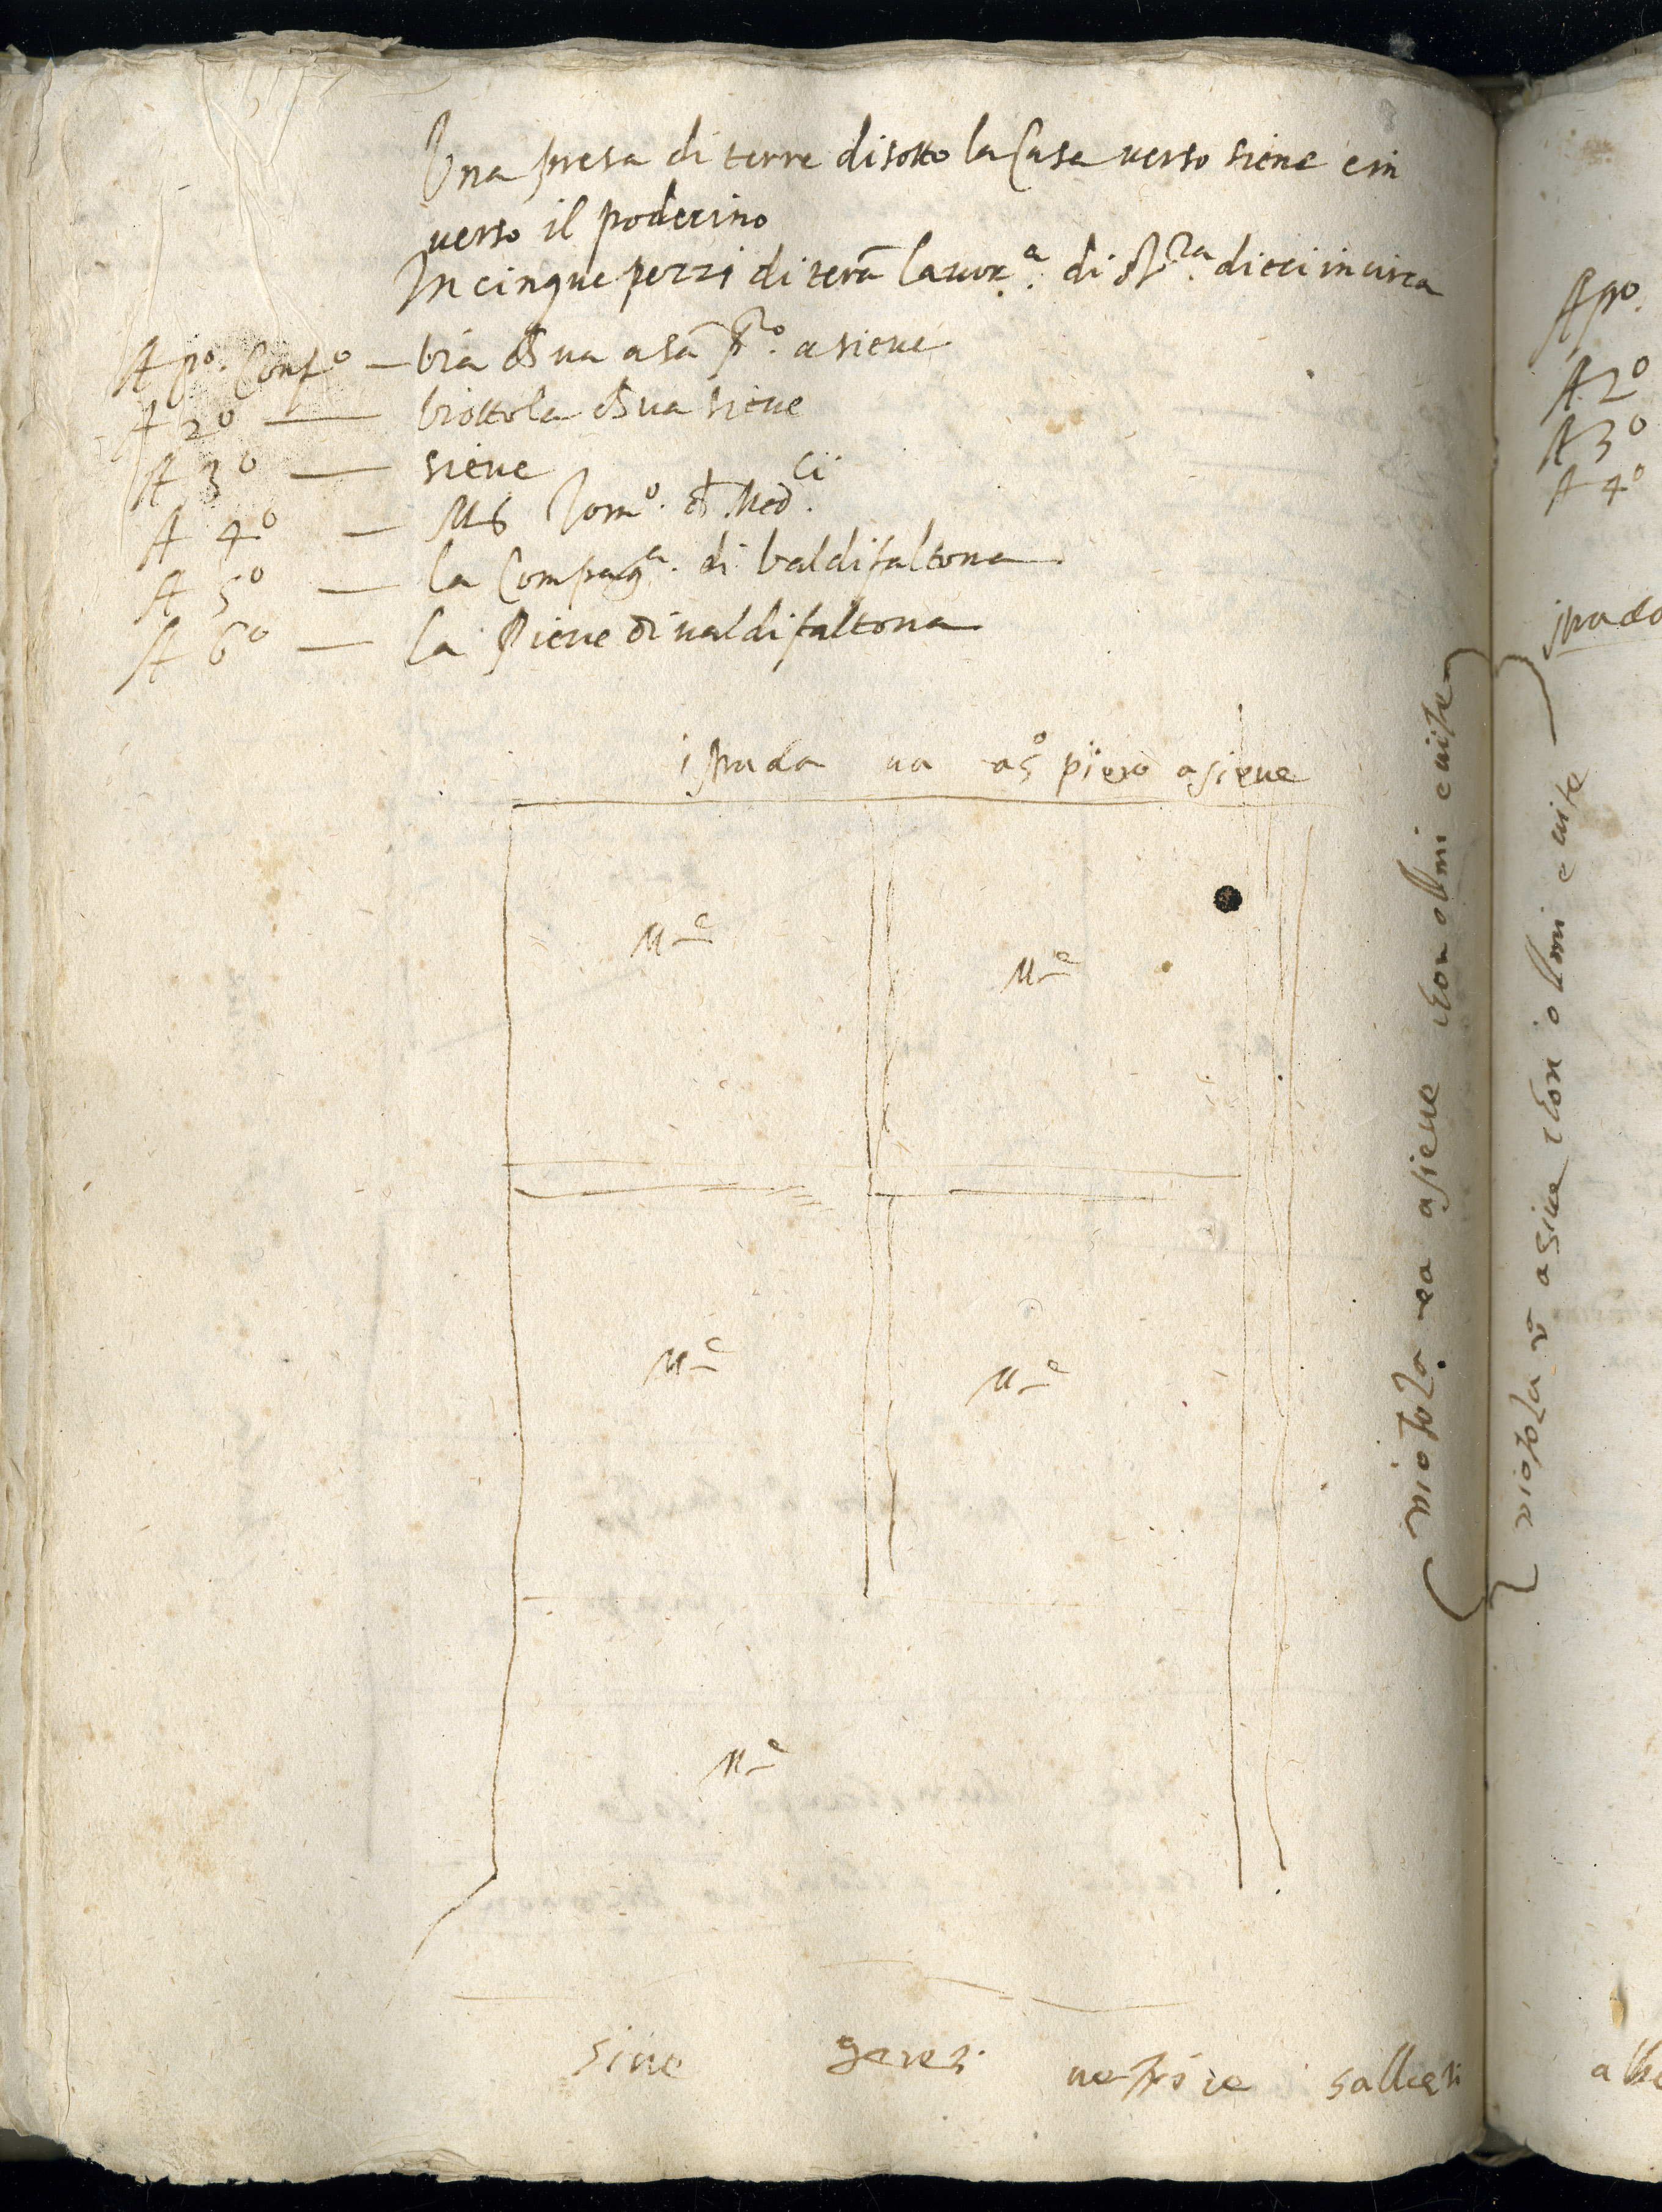 Una presa di terre disotto la Casa verso sieue e in
uerso il poderino
In cinque pezzi di terã lauor.ª di st.ra dieci in circa
A p.º Conf.º — bia che ua a sã p.ro a sieue
A 2º — biottola che ua sieue
A 3º — sieue
A 4º — Ms Tom.º de Med.ci
A 5º — la Compag.ª di baldifaltona
A 6º — la Pieue di ualdifaltona
istrada ua as.º piero asieue
M e
M e
M e
M e
M e
uiotola ua asieue chon olmi e uite
sieue gereti uetrice salleti
A p.º
A 2º
A 3º
A 4º
istrada
uiotola ua asieue chon olmi e uite
albe